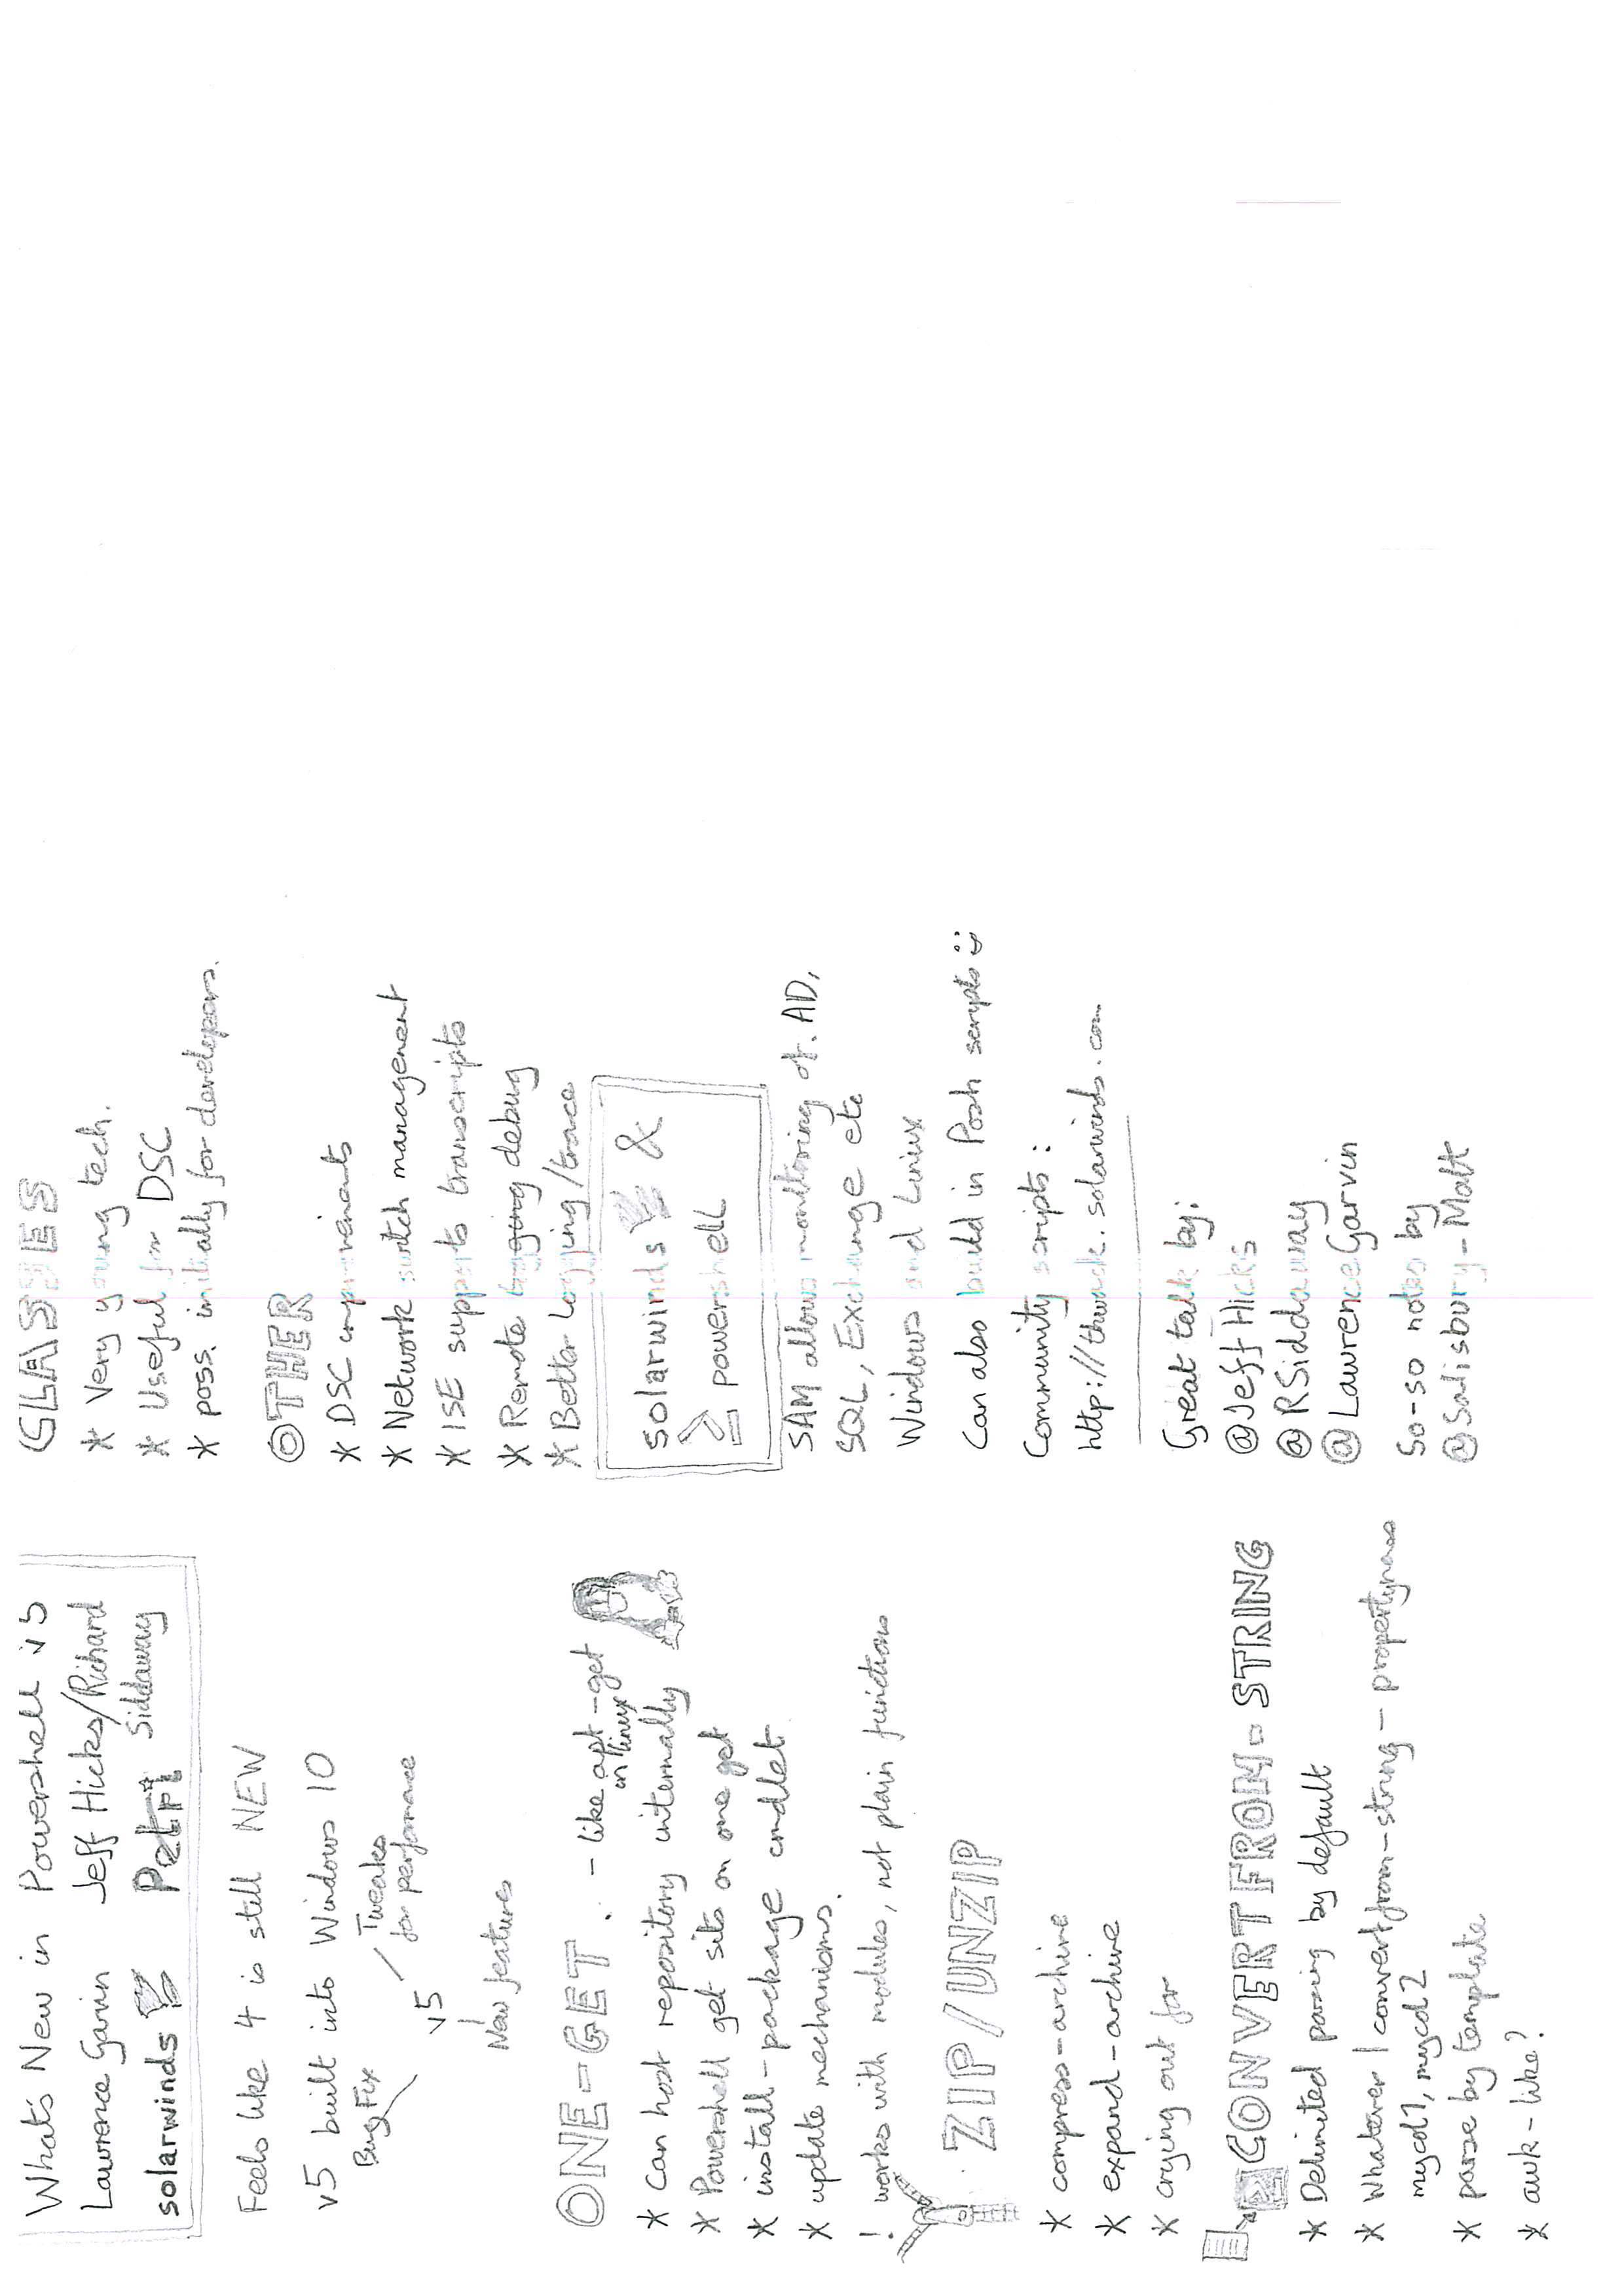 What's New in Powershell v5
Lawrence Garvin Jeff Hicks/Richard
Siddaway
solarwinds Petri
Feels like 4 is still NEW
v5 built into Windows 10
Bug Fix
Tweaks
for performace
v5
New features
ONE-GET. - like apt-get
in linux
* Can host repository internally
* Powershell get sits on one get
* install-package cmdlet
* update mechanisms.
! works with modules, not plain functions
ZIP/UNZIP
* compress-archive
* expand-archive
* crying out for
CONVERTFROM-STRING
* Delimited parsing by default
* Whatever | convertfrom-string - propertynass
mycol1, mycol2
* parse by template
* awk-like?
CLASSES
* Very young tech.
* Useful for DSC
* poss. initially for developers.
OTHER
* DSC improvements
* Network switch management
* ISE supports transcripts
* Remote logging debug
* Better Logging/trace
solarwinds &
powershell
SAM allows monitoring of. AD,
SQL, Exchange etc
Windows and Linux
Can also build in Posh scripts
Community scripts :
http://thwack.solarwinds.com
Great talk by:
@JeffHicks
@RSiddaway
@LawrenceGarvin
So-so notes by
@Salisbury_Matt